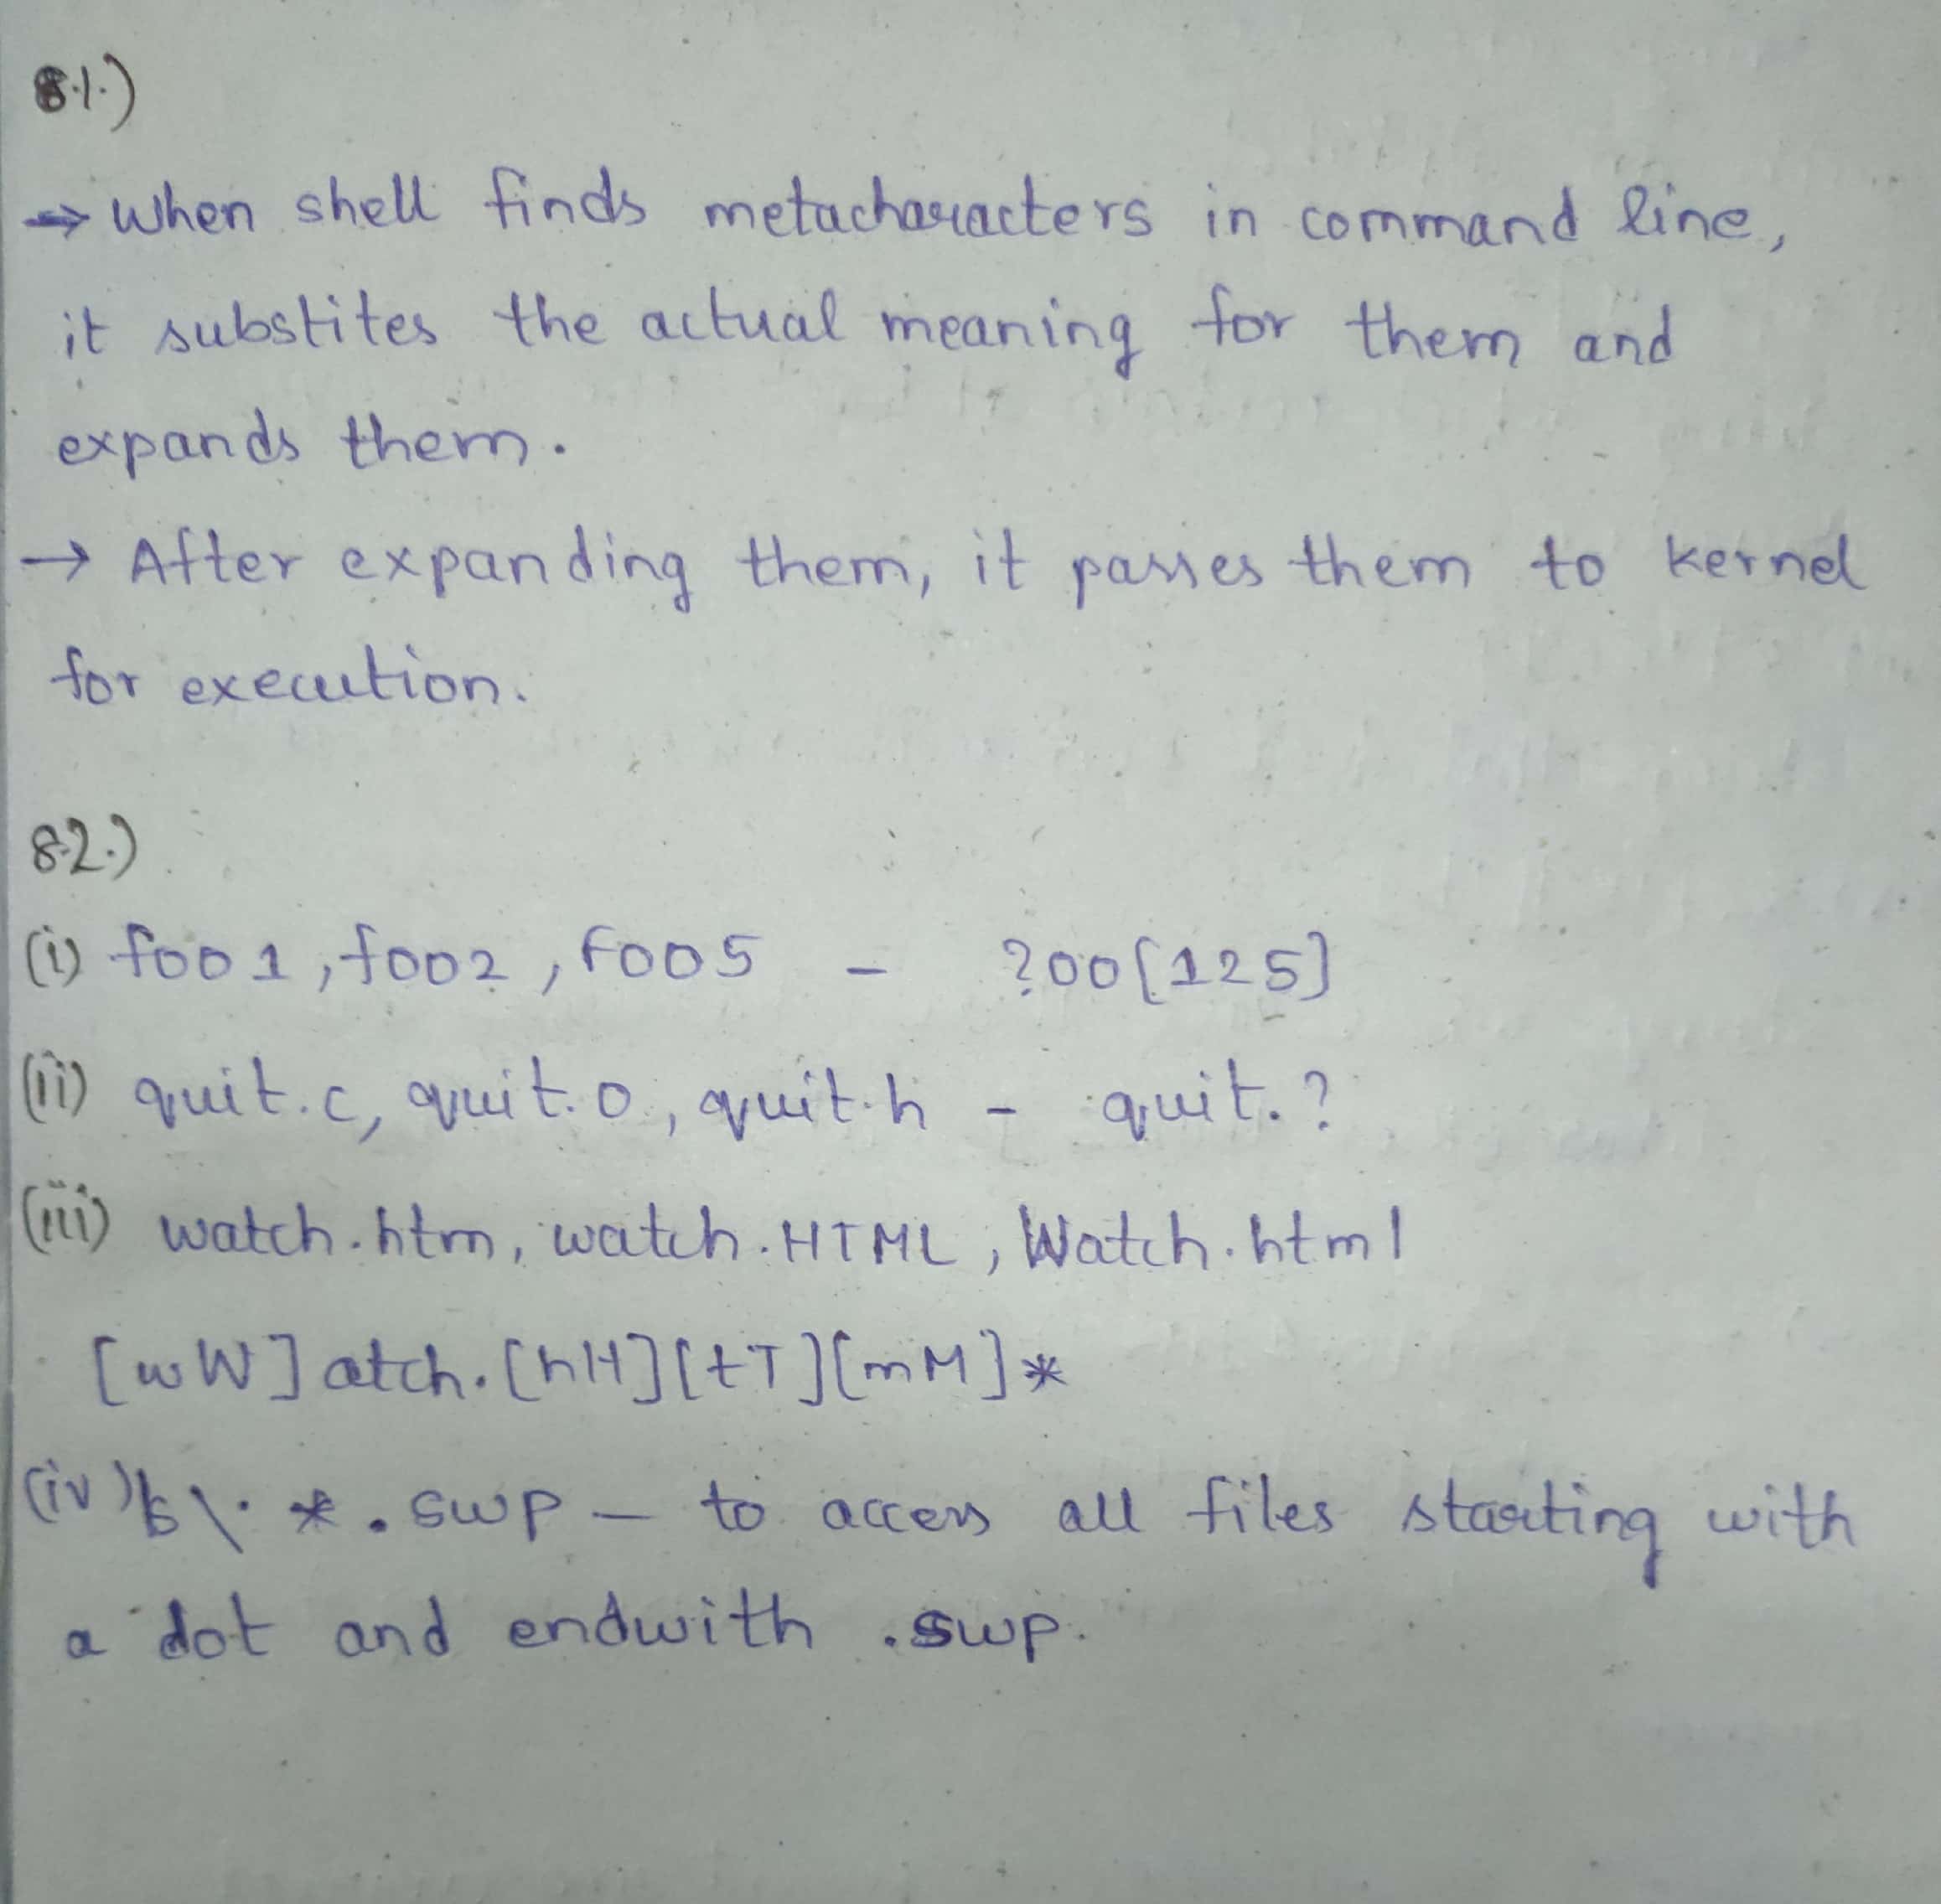 8.1.)
→ When shell finds metacharacters in command line,
it substites the actual meaning for them and
expands them.
→ After expanding them, it passes them to kernel
for execution.
8.2.)
(i) foo1, foo2, Foo5 - ?oo[125]
(ii) quit.c, quit.o, quit.h - quit.?
(iii) watch.htm, watch.HTML, Watch.html
[wW]atch.[hH][tT][mM]*
(iv) \.*.swp - to access all files starting with
a dot and endwith .swp.